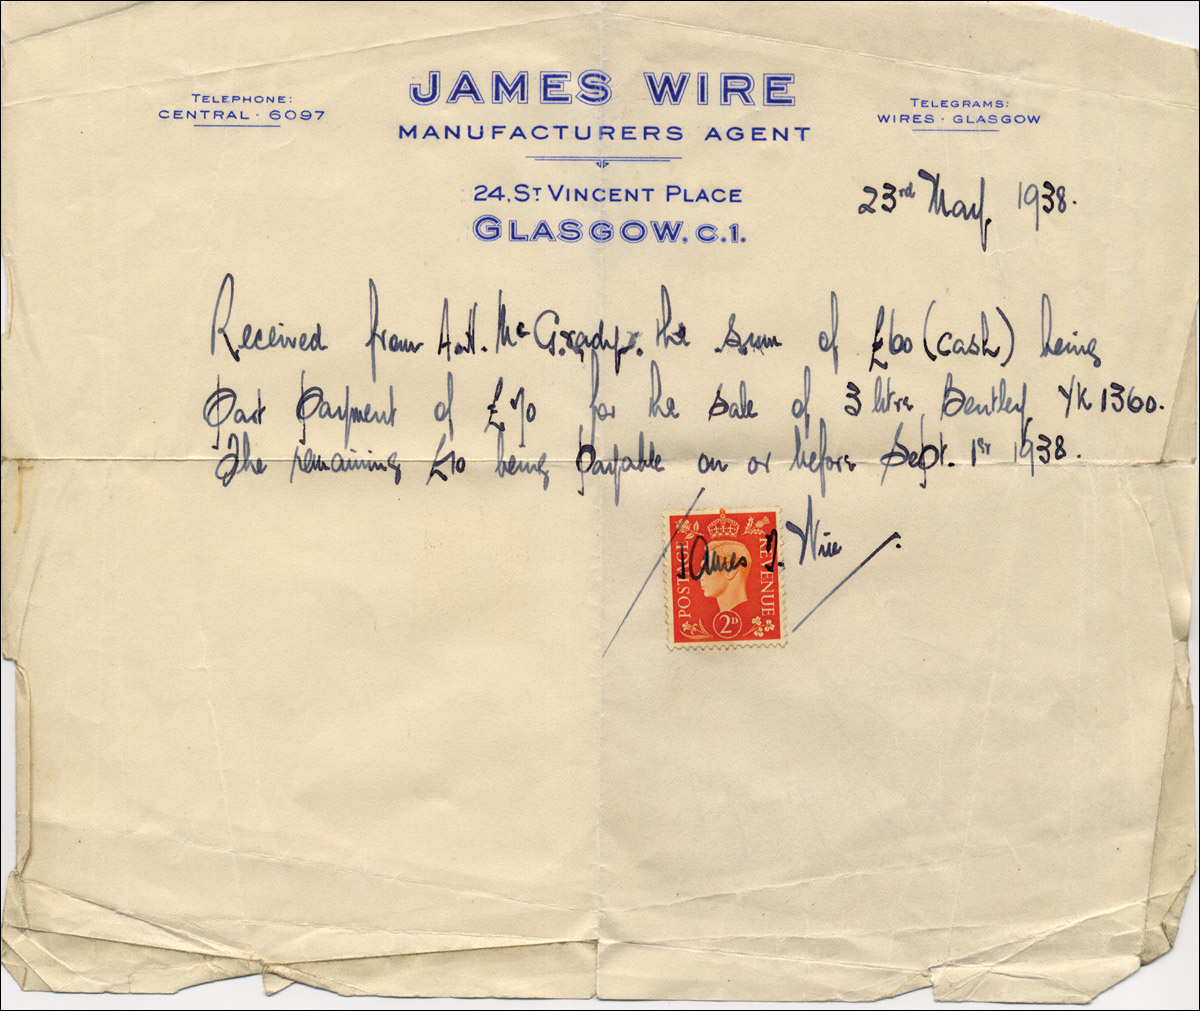 JAMES WIRE
MANUFACTURERS AGENT
TELEPHONE:
CENTRAL · 6097
TELEGRAMS:
WIRES · GLASGOW
24, ST VINCENT PLACE
GLASGOW, C.1.
23rd May, 1938.
Received from A.H. McGrady. the sum of £60 (cash) being
Part Payment of £70 for the sale of 3 litre Bentley YK 1360.
The remaining £10 being payable on or before Sept. 1st 1938.
James J. Wire
POSTAGE
REVENUE
2D